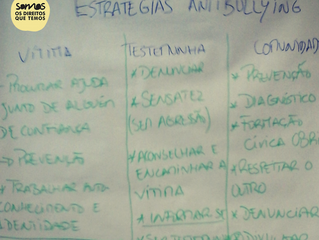 SOMOS
OS DIREITOS
QUE TEMOS
ESTRATÉGIAS ANTIBULLYING
VÍTIMA
PROCURAR AJUDA
JUNTO DE ALGUÉM
DE CONFIANÇA
PREVENÇÃO
TRABALHAR AUTO
CONHECIMENTO E
IDENTIDADE
TESTEMUNHA
* DENUNCIAR
* SENSATEZ
(SEM AGRESSÃO)
* ACONSELHAR E
ENCAMINHAR A
VÍTIMA
* INFORMAR-SE
COMUNIDAD
* PREVENÇÃO
* DIAGNÓSTICO
* FORMAÇÃO
CÍVICA OBR
* RESPEITAR O
OUTRO
* DENUNCIAR